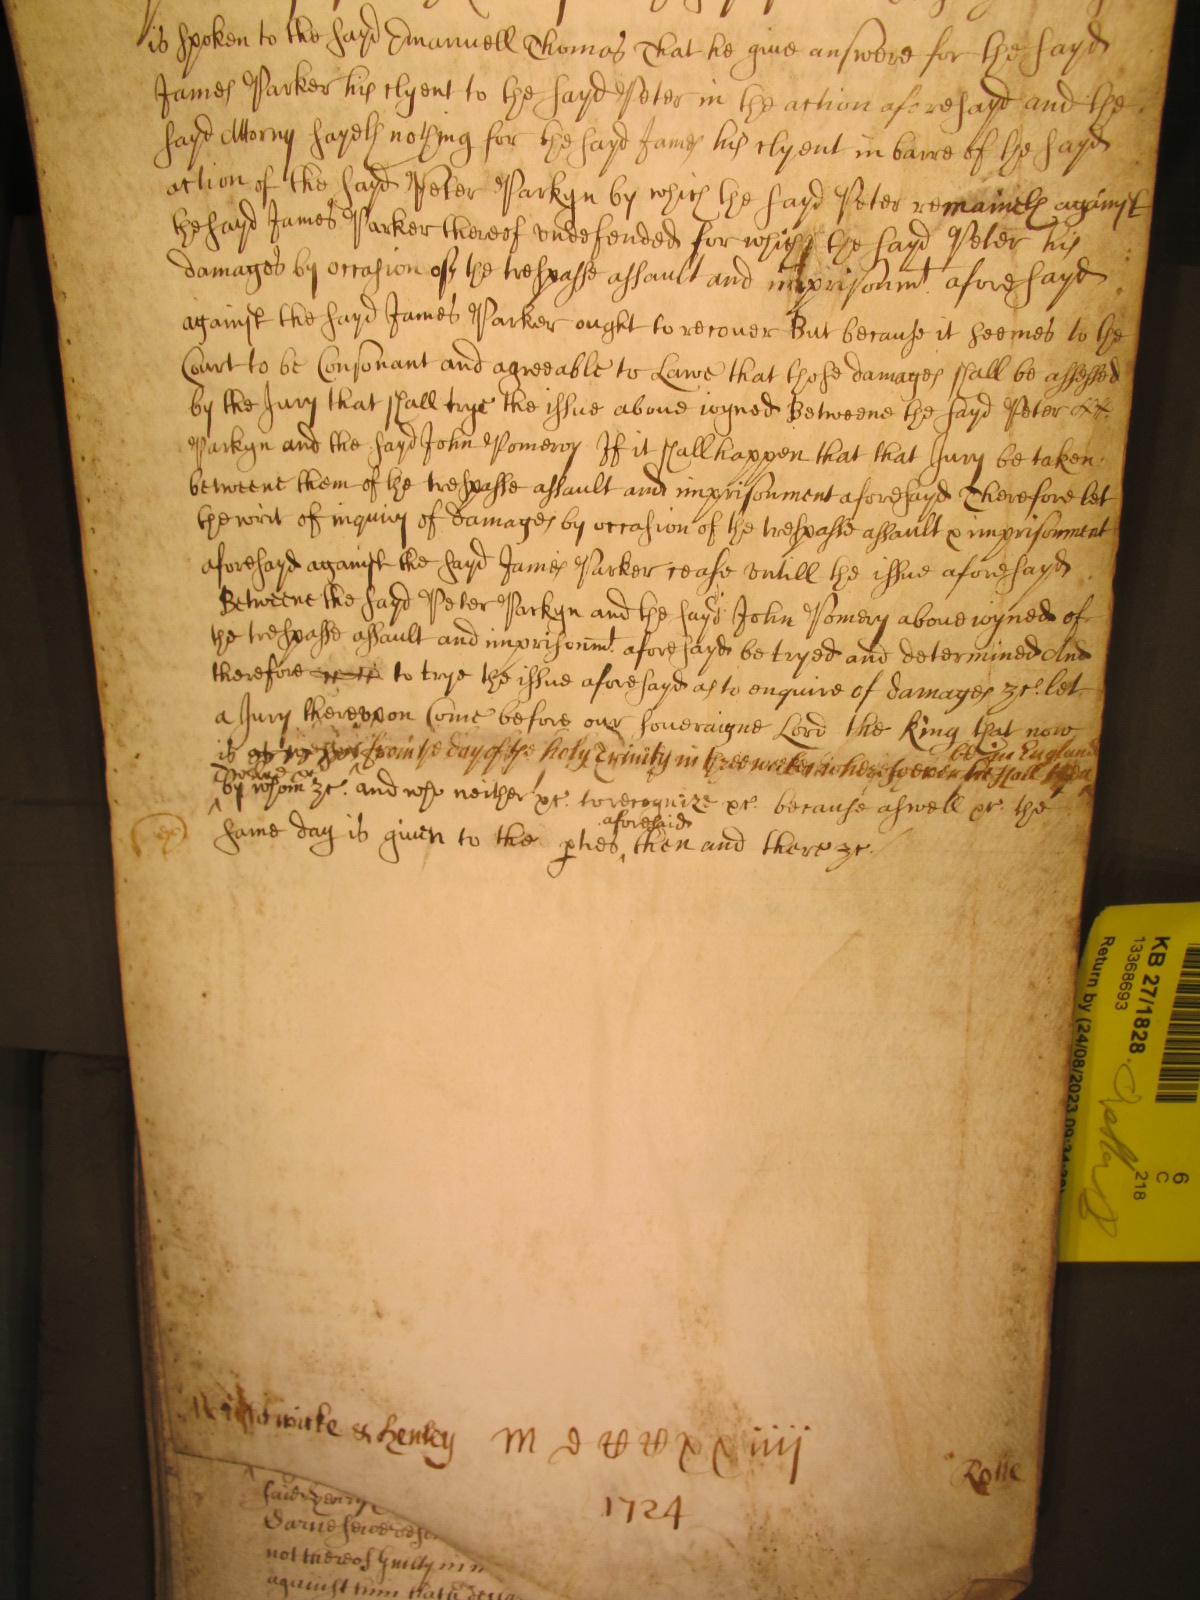 is spoken to the sayd Emanuell Thomas That he give answere for the sayd
James Parker his clyent to the sayd Peter in the action aforesayd and the
sayd Attorny sayeth nothing for the sayd James his clyent in barre of the sayd
action of the sayd Peter Parkyn by which the sayd Peter remaineth against
the sayd James Parker thereof undefended for which the sayd Peter his
damages by occasion of the trespasse assault and imprisonmt aforesayd
against the sayd James Parker ought to recouer But because it seemes to the
Court to be Consonant and agreeable to Lawe that those damages shall be assessed
by the Jury that shall trye the issue above ioyned Betweene the sayd Peter
Parkyn and the sayd John Pomeroy If it shall happen that that Jury be taken
betweene them of the trespasse assault and imprisonment aforesayd Therefore let
the writ of inquiry of damages by occasion of the trespasse assault & imprisonment
aforesayd against the sayd James Parker cease untill the issue aforesayd
Betweene the sayd Peter Parkyn and the sayd John Pomery above ioyned of
the trespasse assault and imprisonmt aforesayd be tryed and determined And
therefore to trye the issue aforesayd as to enquire of damages &c. let
a Jury thereupon Come before our soueraigne Lord the King that now
is from the day of the holy Trinity in three weekes wheresoever he shall then
be in England
by whom &c. and who neither &c. to recognize &c. because aswell &c. the
same day is given to the pties aforesaid then and there &c.
& Henley M D CC XX iiij
Rolle
1724
said Henry
not thereof guilty
against him
KB 27/1828
13368693
Return by (24/08/2023
218
6
C